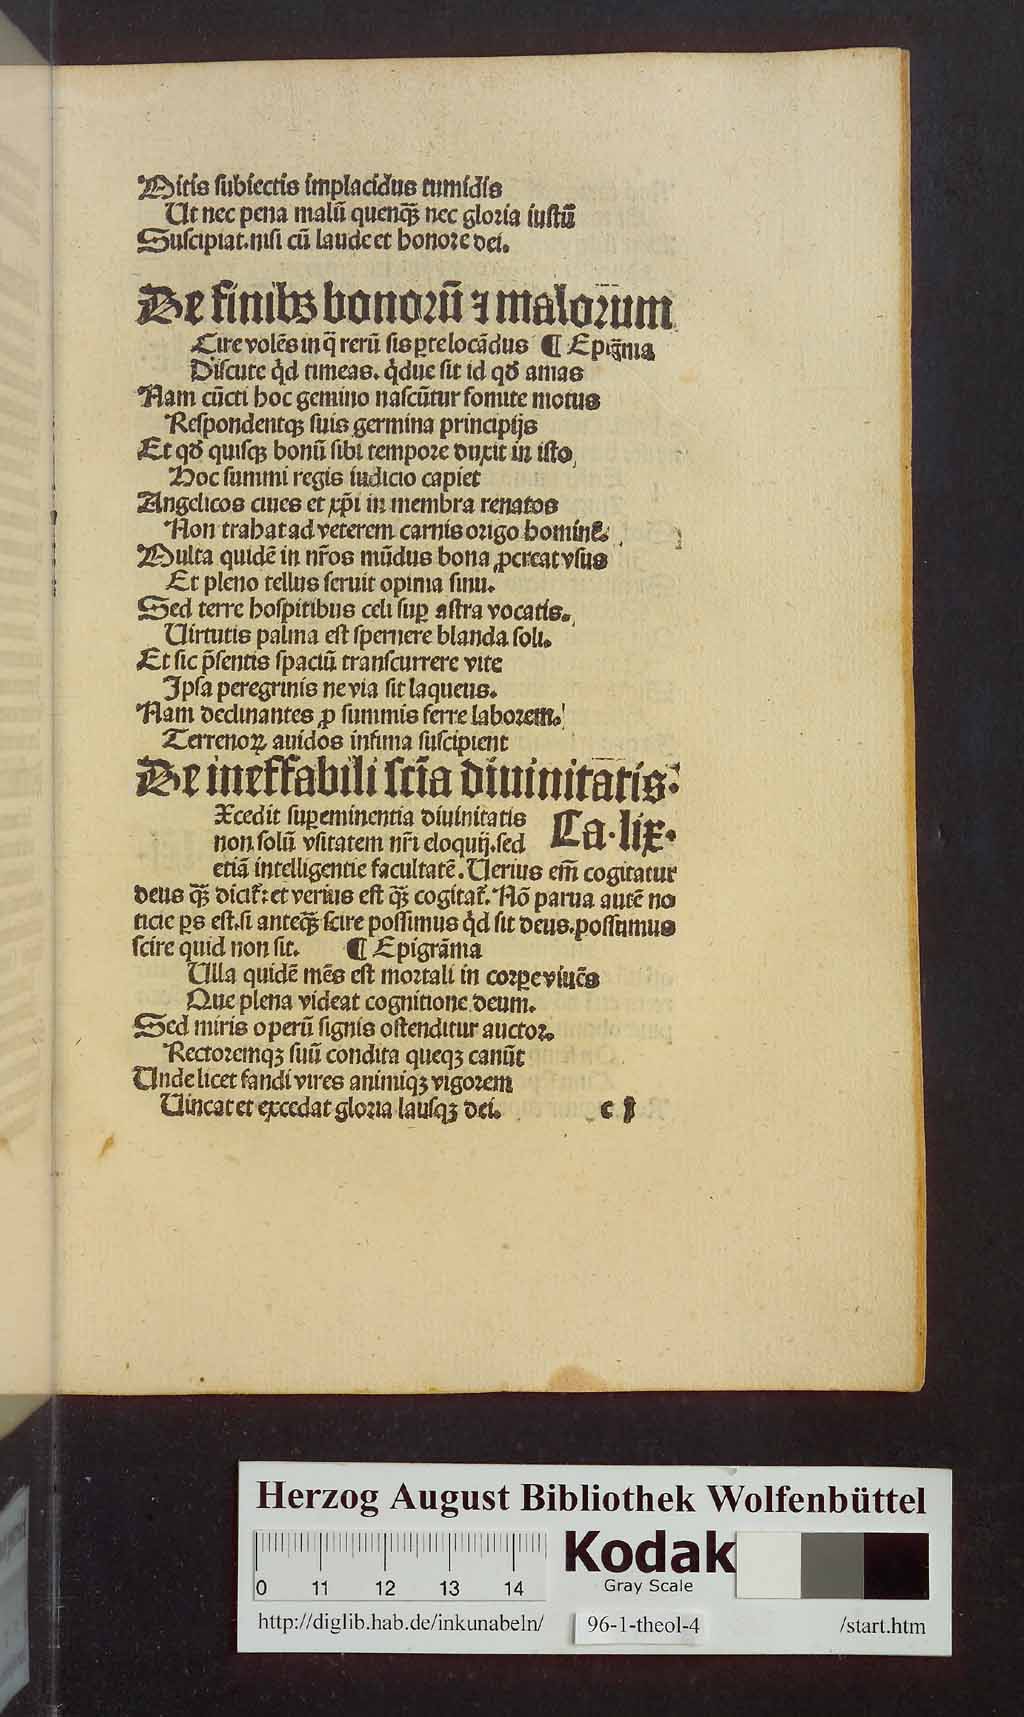 Mitis subiectis implacidus tumidis
Ut nec pena malũ quenq̃ nec gloria iustũ
Suscipiat.nisi cũ laude et honore dei.
De finibꝫ bonorũ ⁊ malorum
Cire volẽs in q̃ rerũ sis ꝑte locãdus ¶ Epigr̃ma
Discute qͥd timeas. qͥdue sit id qđ amas
Nam cũcti hoc gemino nascũtur fomite motus
Respondentqꝫ suis germina principijs
Et qđ quisqꝫ bonũ sibi tempore duxit in isto
Hoc summi regis iudicio capiet
Angelicos ciues et xp̃i in membra renatos
Non trahat ad veterem carnis origo hominẽ.
Multa quidẽ in nr̃os mũdus bona ꝓcreat vsus
Et pleno tellus seruit opima sinu.
Sed terre hospitibus celi suꝑ astra vocatis.
Uirtutis palma est spernere blanda soli.
Et sic p̃sentis spaciũ transcurrere vite
Ipsa peregrinis ne via sit laqueus.
Nam declinantes ꝓ summis ferre laborem.
Terrenoꝝ auidos infima suscipient
De ineffabili sciẽa diuinitatis.
Xcedit suꝑeminentia diuinitatis
Ca.lix.
non solũ vsitatem nr̃i eloquij.sed
etiã intelligentie facultatẽ. Uerius em̃ cogitatur
deus q̃ꝫ dicit᷑: et verius est q̃ꝫ cogitat᷑. Nõ parua autẽ no
ticie ꝑs est.si anteq̃ꝫ scire possimus qͥd sit deus.possumus
scire quid non sit. ¶ Epigrãma
Ulla quidẽ mẽs est mortali in corꝑe viuẽs
Que plena videat cognitione deum.
Sed miris operũ signis ostenditur auctor.
Rectoremqꝫ suũ condita queqꝫ canũt
Unde licet fandi vires animiqꝫ vigorem
Uincat et excedat gloria lausqꝫ dei. e j
Herzog August Bibliothek Wolfenbüttel
0 11 12 13 14
Kodak
Gray Scale
http://diglib.hab.de/inkunabeln/ 96-1-theol-4 /start.htm